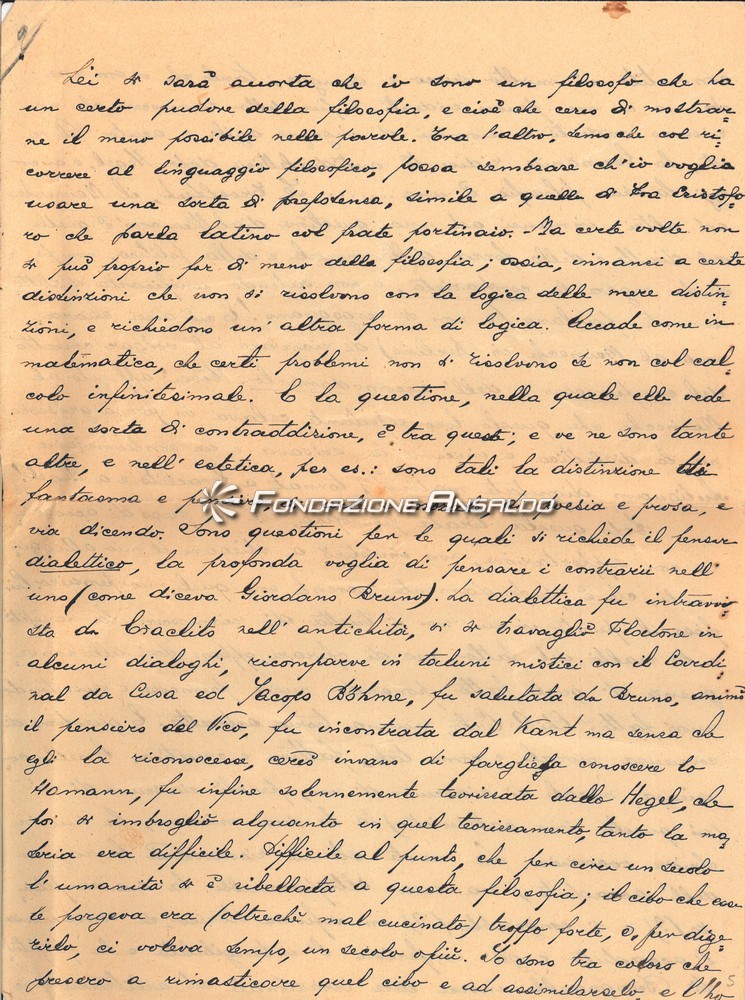 2
Lei si sarà accorta che io sono un filosofo che ha
un certo pudore della filosofia, e cioè che cerco di mostrar-
ne il meno possibile nelle parole. Tra l'altro, temo che col ri-
correre al linguaggio filosofico, possa sembrare ch'io voglia
usare una sorta di prepotenza, simile a quella di Fra Cristofo-
ro che parla latino col frate portinaio. Ma certe volte non
si può proprio far di meno della filosofia; ossia, innanzi a certe
distinzioni che non si risolvono con la logica delle mere distin-
zioni, e richiedono un'altra forma di logica. Accade come in
matematica, che certi problemi non si risolvono se non col cal-
colo infinitesimale. E la questione, nella quale ella vede
una sorta di contraddizione, è tra queste; e ve ne sono tante
altre, e nell'estetica, per es.: sono tali la distinzione di
fantasma e FONDAZIONE ANSALDO di poesia e prosa, e
via dicendo. Sono questioni per le quali si richiede il pensar
dialettico, la profonda voglia di pensare i contrarii nell'
uno (come diceva Giordano Bruno). La dialettica fu intravvi-
sta da Eraclito nell'antichità, vi si travagliò Platone in
alcuni dialoghi, ricomparve in taluni mistici con il Cardi-
nal da Cusa ed Jacopo Böhme, fu salutata da Bruno, animò
il pensiero del Vico, fu incontrata dal Kant ma senza che
egli la riconoscesse, cercò invano di fargliela conoscere lo
Hamann, fu infine solennemente teorizzata dallo Hegel, che
poi si imbrogliò alquanto in quel teorizzamento, tanto la ma-
teria era difficile. Difficile al punto, che per circa un secolo
l'umanità si è ribellata a questa filosofia; il cibo che essa
le porgeva era (oltreché mal cucinato) troppo forte, e, per dige-
rirlo, ci voleva tempo, un secolo o più. Io sono tra coloro che
presero a rimasticare quel cibo e ad assimilarselo, e l'ho
5